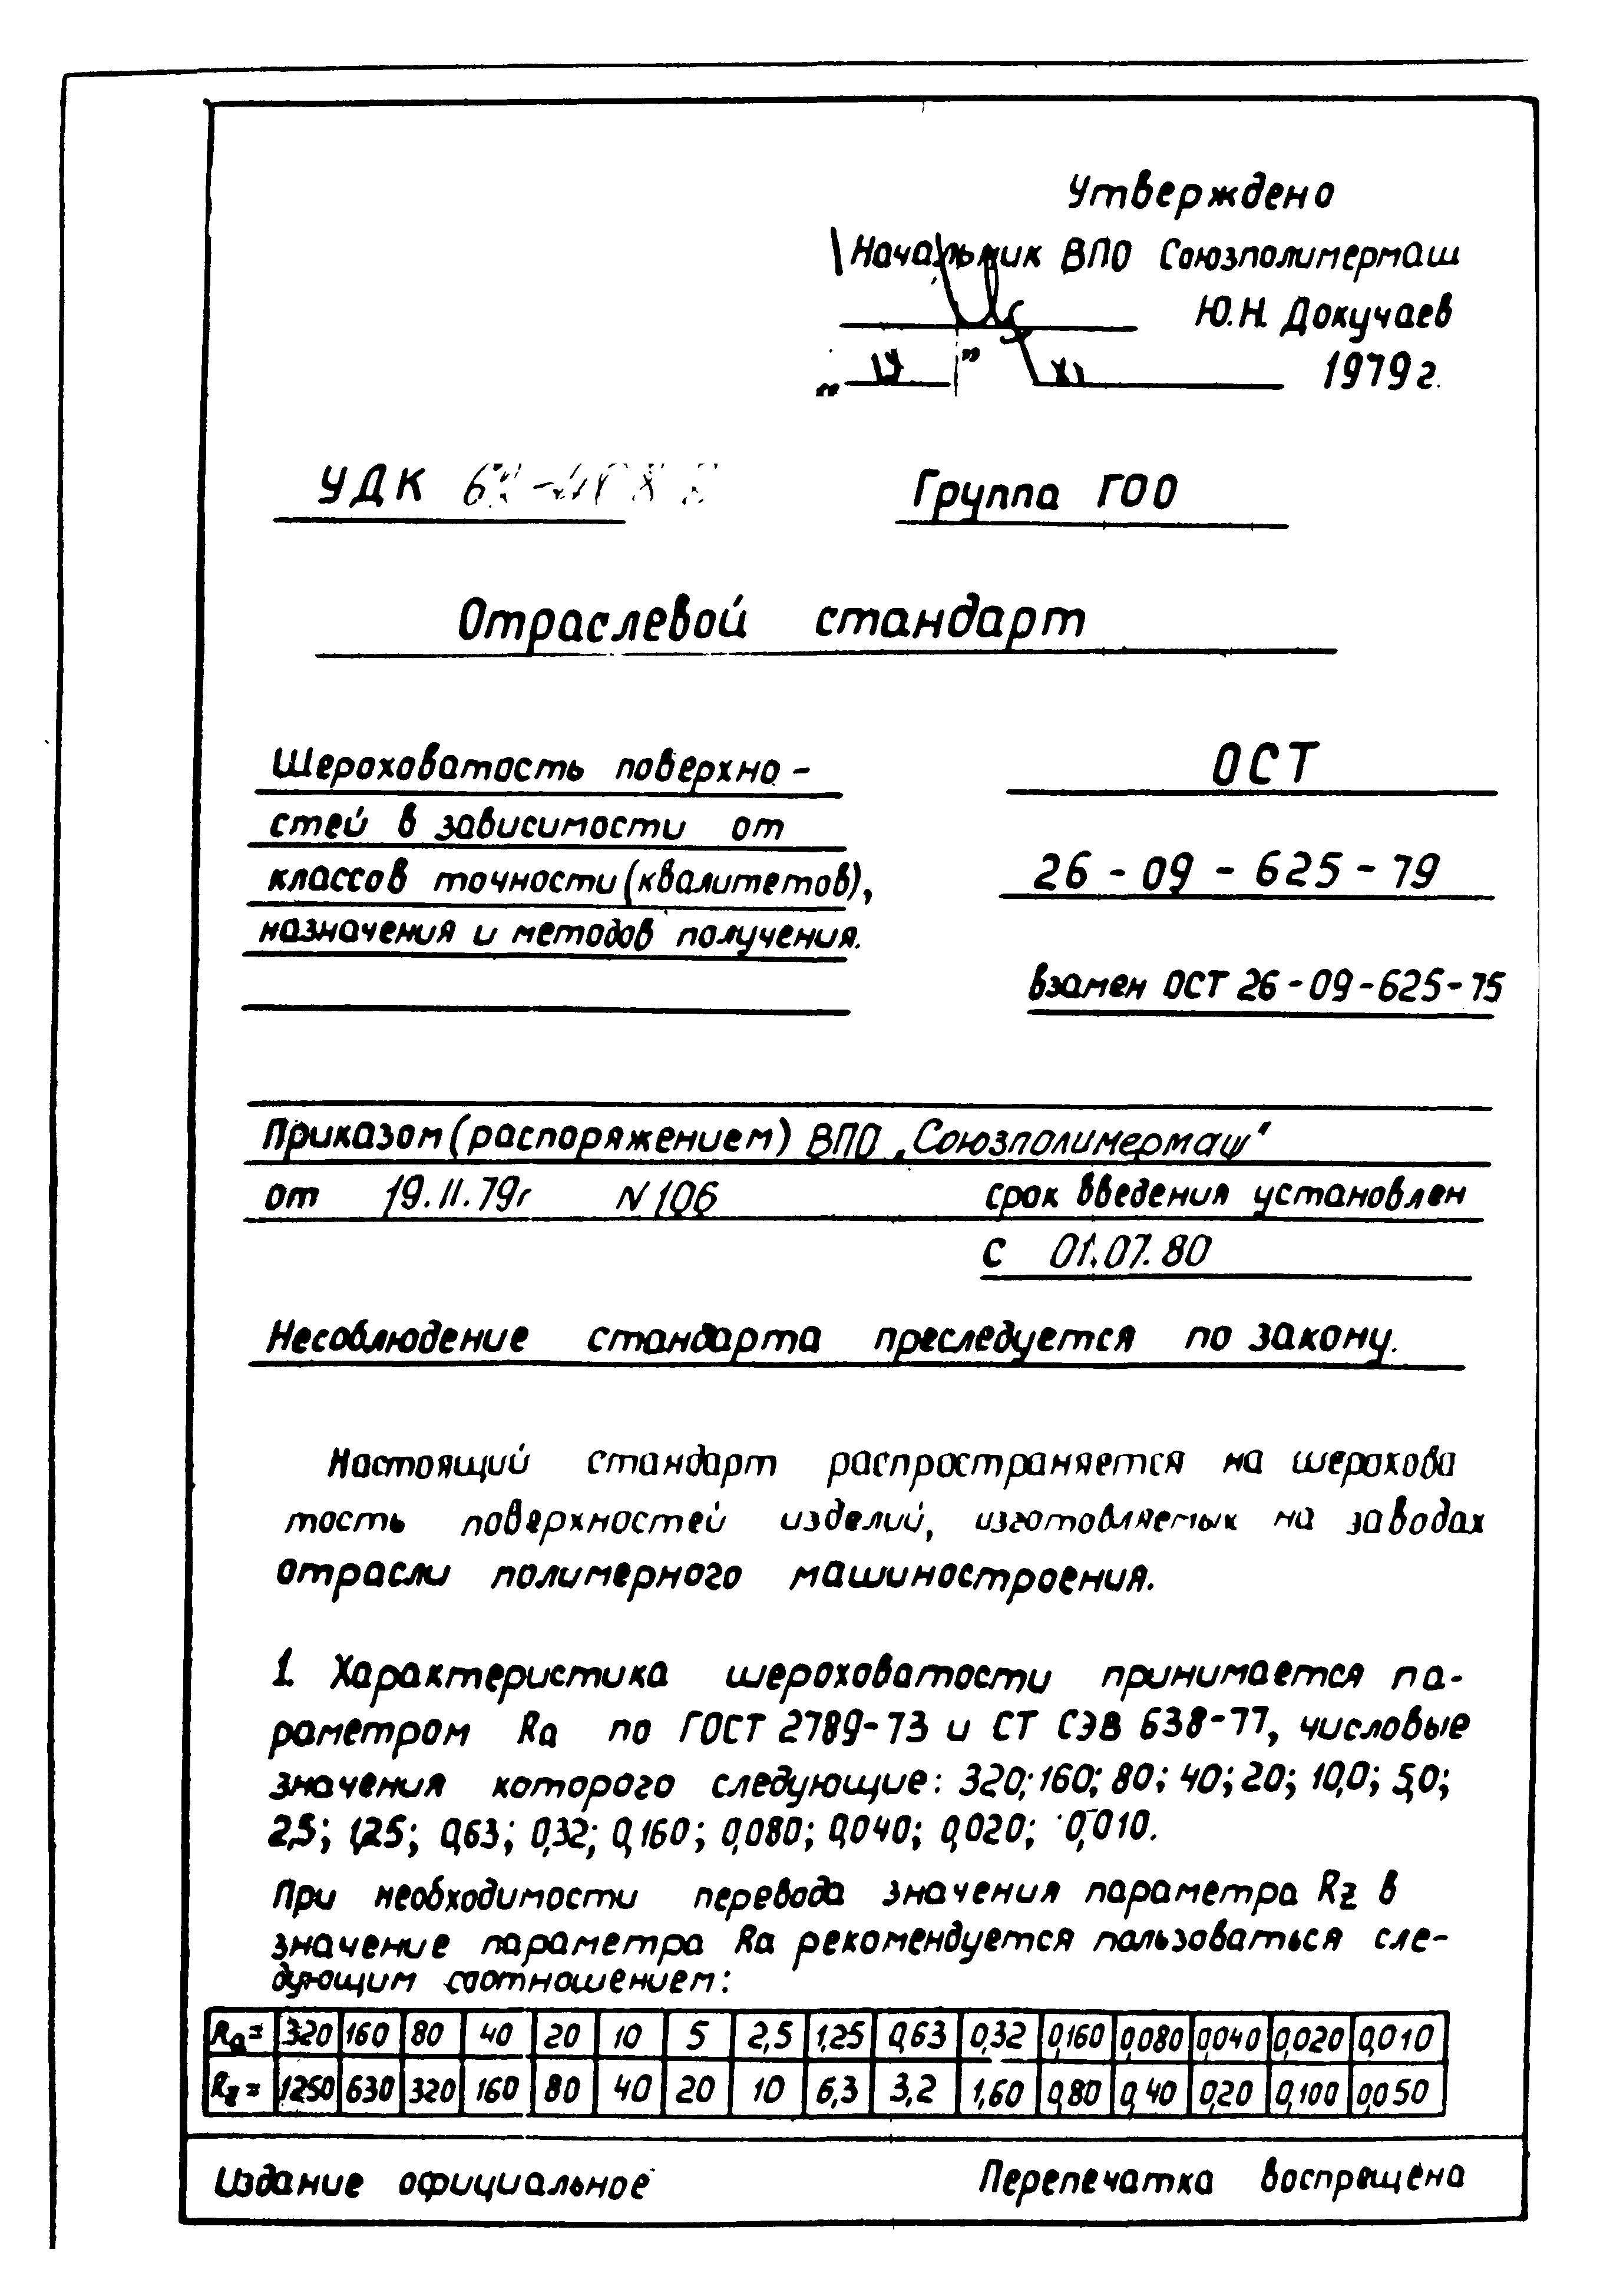 Утверждено
Начальник ВПО Союзполимермаш
Ю.Н. Докучаев
" 19 " XI 1979г.
УДК Группа Г00
Отраслевой стандарт
Шероховатость поверхно-
ОСТ
стей в зависимости от
классов точности (квалитетов),
26-09-625-79
назначения и методов получения.
взамен ОСТ 26-09-625-75
Приказом (распоряжением) ВПО „Союзполимермаш"
от 19.11.79г N106 срок введения установлен
с 01.07.80
Несоблюдение стандарта преследуется по закону.
Настоящий стандарт распространяется на шерохова
тость поверхностей изделий, изготовляемых на заводах
отрасли полимерного машиностроения.
1. Характеристика шероховатости принимается па-
раметром Ra по ГОСТ 2789-73 и СТ СЭВ 638-77, числовые
значения которого следующие: 320; 160; 80; 40; 20; 10,0; 5,0;
2,5; 1,25; 0,63; 0,32; 0,160; 0,080; 0,040; 0,020; 0,010.
При необходимости перевода значения параметра Rz в
значение параметра Ra рекомендуется пользоваться сле-
дующим соотношением:
Ra= 320 160 80 40 20 10 5 2,5 1,25 0,63 0,32 0,160 0,080 0,040 0,020 0,010
Rz= 1250 630 320 160 80 40 20 10 6,3 3,2 1,60 0,80 0,40 0,20 0,100 0,050
Издание официальное Перепечатка воспрещена